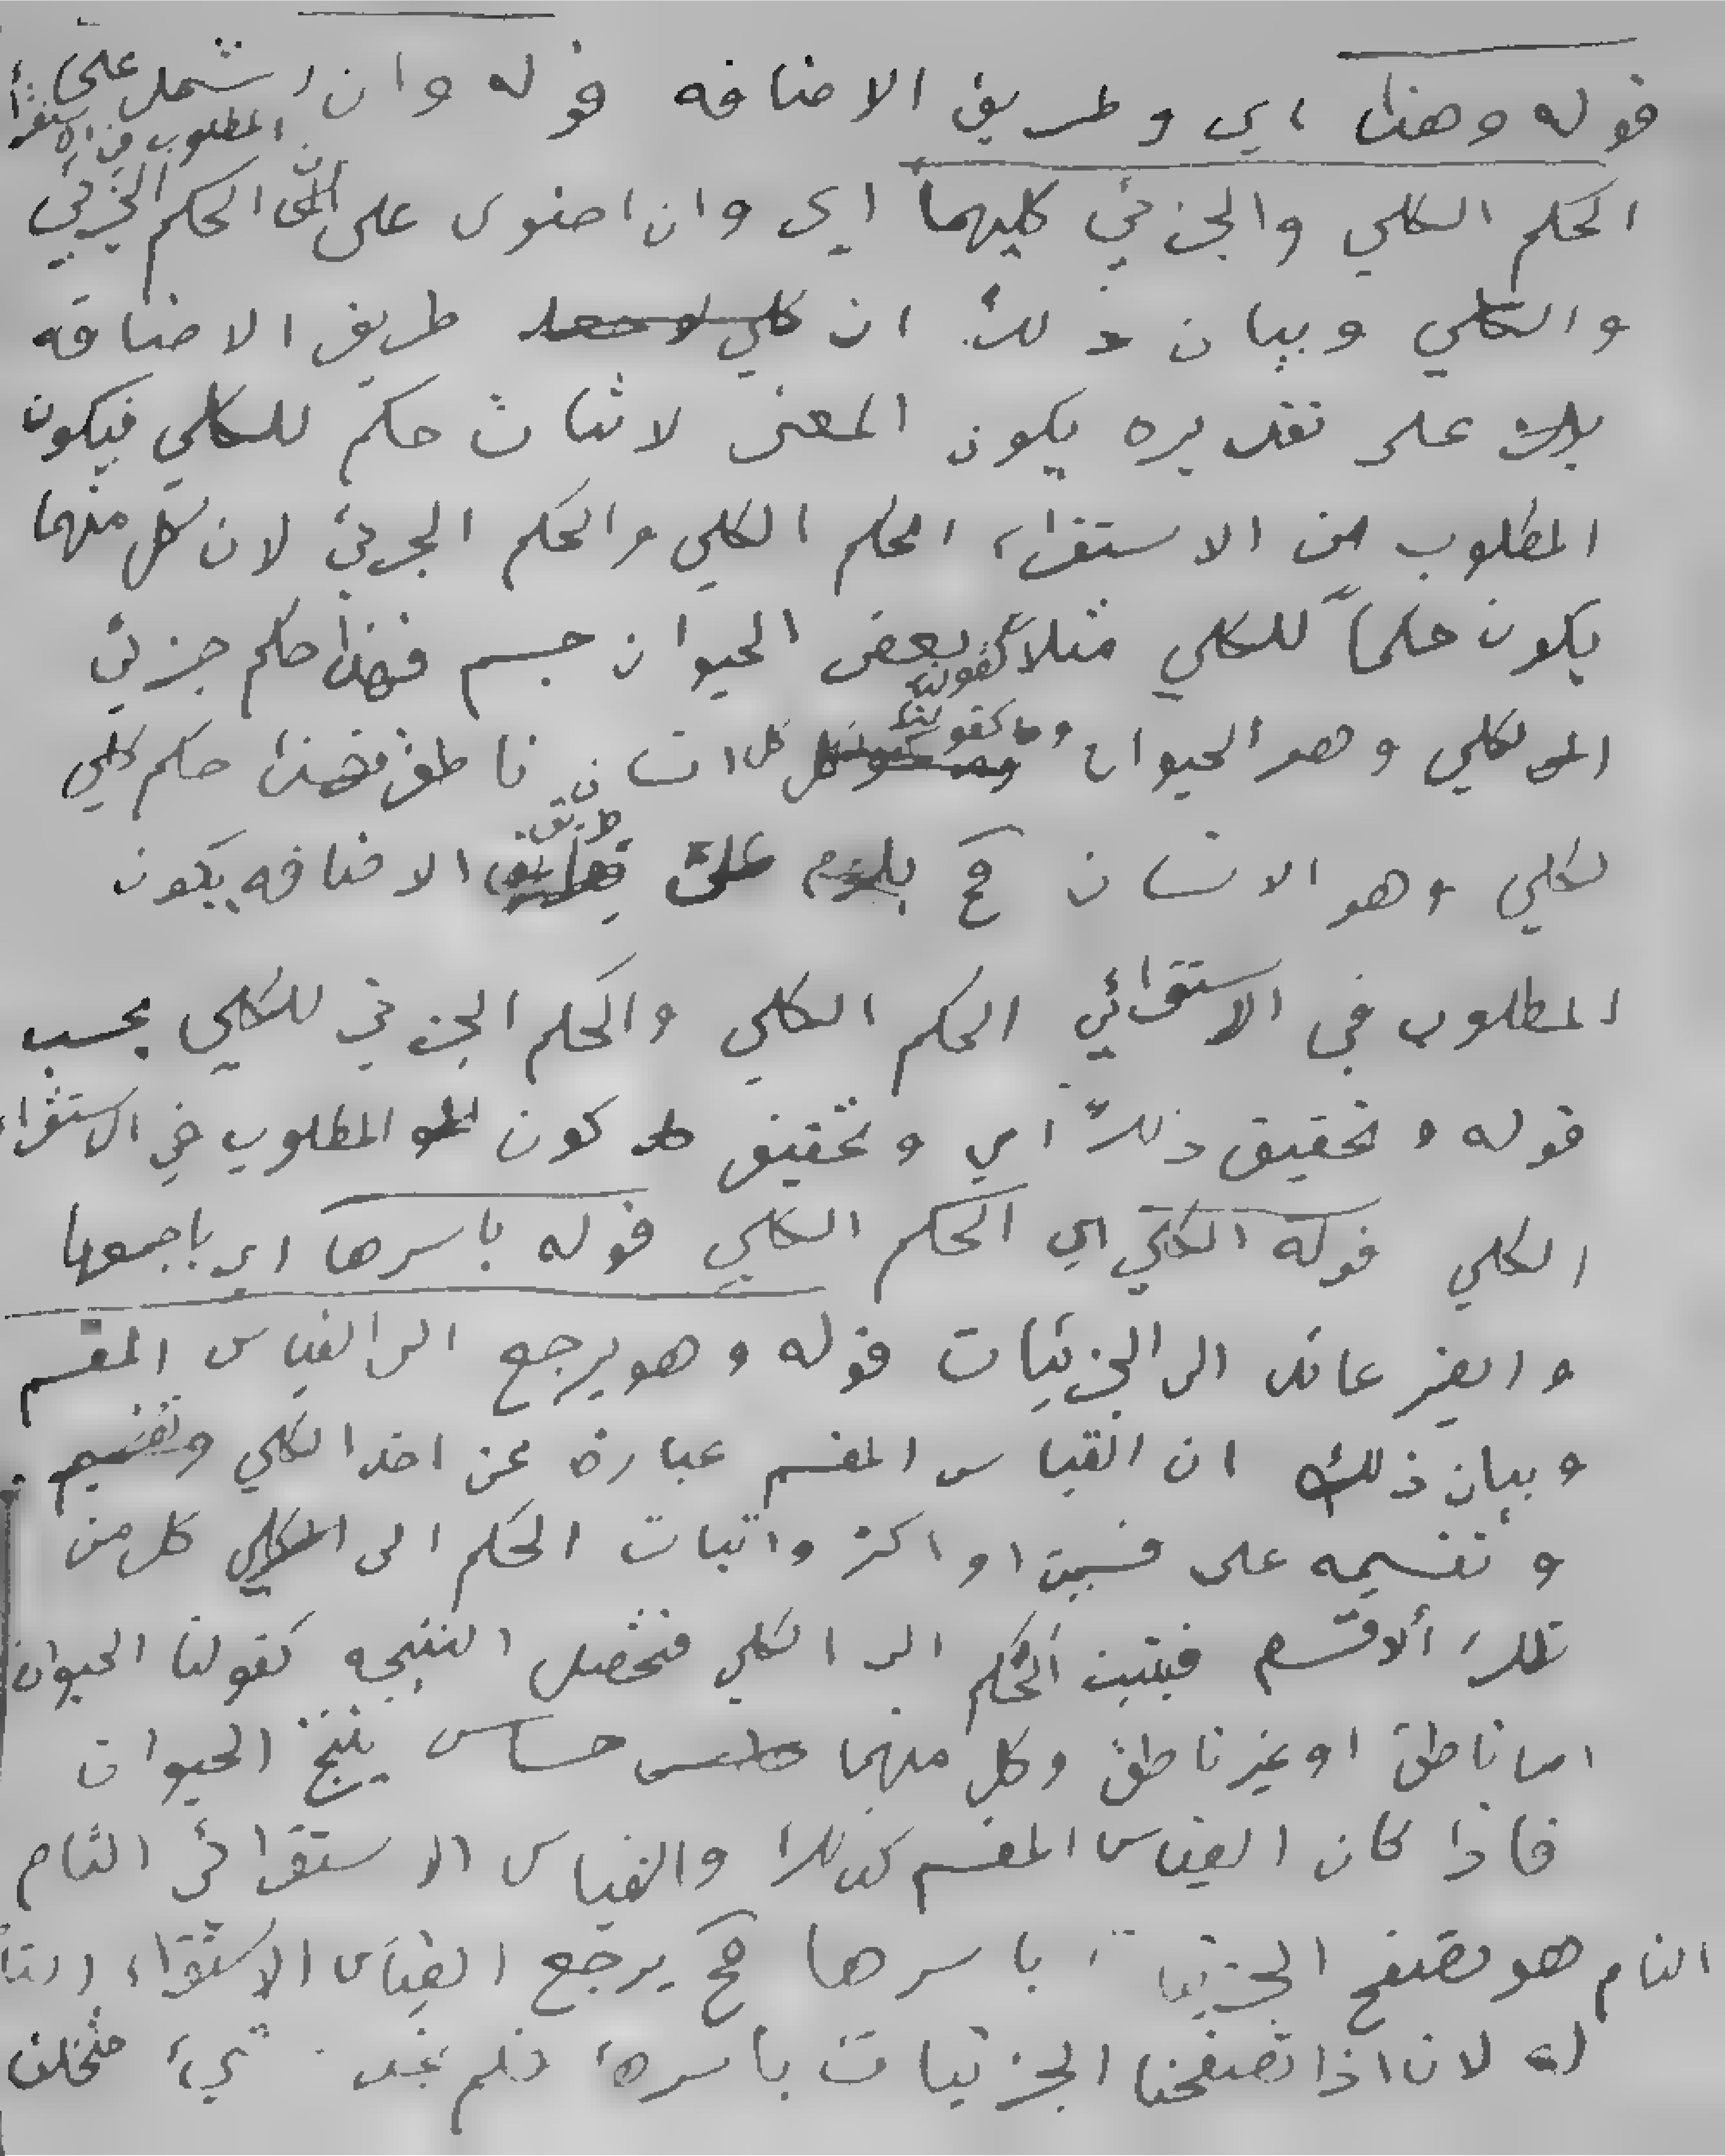 قوله وهذا اي وطريق الاضافه قوله وان اشتمل على
المطلوب
الحكم الكلي والجزئي كليهما اي وان احتوى على الحكم الجزئي
والكلي وبيان ذلك ان طريق الاضافه
على تقديره يكون المعنى لاثبات حكم للكلي فيكون
المطلوب من الاستقراء الحكم الكلي والحكم الجزئي لان كل منهما
يكون حكماً للكلي مثلا كقولنا بعض الحيوان جسم فهذا حكم جزئي
لكلي وهو الحيوان وكقولنا كل انسان ناطق فهذا حكم كلي
لكلي وهو الانسان فح يلزم على طريق الاضافه يكون
المطلوب في الاستقرائي الحكم الكلي والحكم الجزئي للكلي بحسب
قوله وتحقيق ذلك اي وتحقيق كون المطلوب في الاستقراء
الكلي قوله الكلي اي الحكم الكلي قوله باسرها اي باجمعها
والضمير عائد الى الجزئيات قوله وهو يرجع الى القياس المقسم
وبيان ذلك ان القياس المقسم عبارة عن اخذ الكلي وتقسيم
وتقسيمه على قسمين او اكثر واثبات الحكم الى كل من
تلك الاقسام فيثبت الحكم الى الكلي فتحصل النتيجه كقولنا الحيوان
اما ناطق او غير ناطق وكل منهما حساس ينتج الحيوان
فاذا كان القياس المقسم كذلك والقياس الاستقرائي التام
التام هو تصفح الجزئيات باسرها فح يرجع القياس الاستقراء التا
له لان اذا تصفحنا الجزئيات باسره فلم نجد شيء متخلف